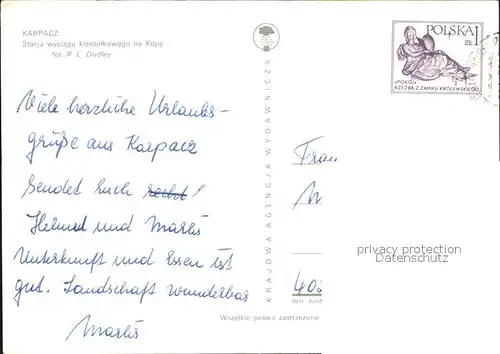 KARPACZ
Stacja wyciągu krzesełkowego na Kopę
fot. R. L. Dudley
Viele herzliche Urlaubs-
grüße aus Karpacz
sendet Euch recht!
Helmut und Marlis
Unterkunft und Essen ist
gut. Landschaft wunderbar
Marlis
KRAJOWA AGENCJA WYDAWNICZA
POLSKA 1
ZŁ
«POKÓJ»
RZEŹBA Z ZAMKU KRÓLEWSKIEGO
Frau
privacy protection
Datenschutz
40
Wszelkie prawa zastrzeżone